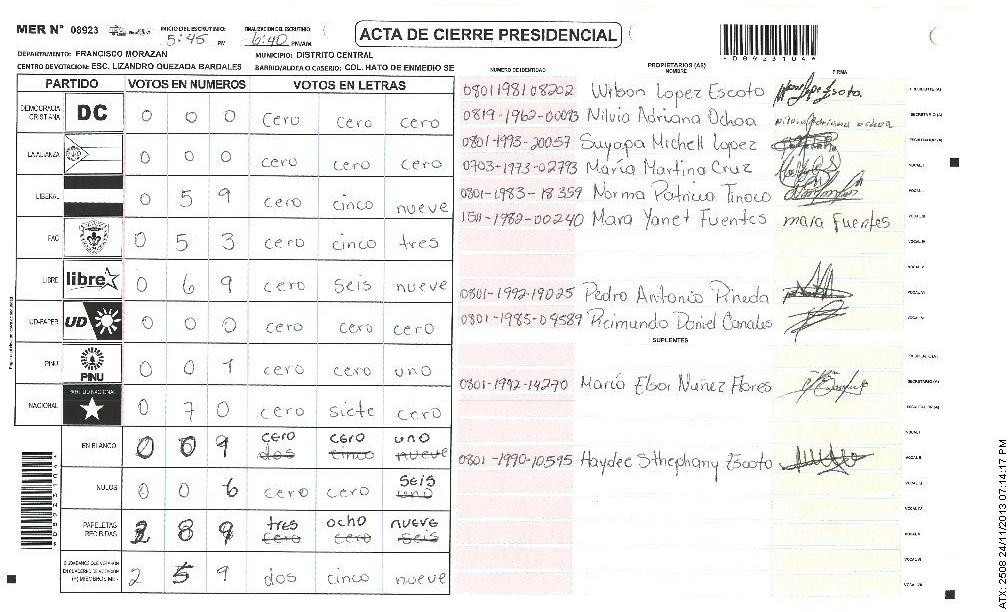 MER Nº 08923
INICIO DEL ESCRUTINIO: 5:45 PM
FINALIZACION DEL ESCRUTINIO: 6:40 PM/AM
ACTA DE CIERRE PRESIDENCIAL
DEPARTAMENTO: FRANCISCO MORAZAN MUNICIPIO: DISTRITO CENTRAL
CENTRO DE VOTACION: ESC. LIZANDRO QUEZADA BARDALES BARRIO/ALDEA O CASERIO: COL. HATO DE ENMEDIO SE
PARTIDO VOTOS EN NUMEROS VOTOS EN LETRAS
DEMOCRACIA CRISTIANA DC 0 0 0 cero cero cero
LA ALIANZA 0 0 0 cero cero cero
LIBERAL 0 5 9 cero cinco nueve
PAC 0 5 3 cero cinco tres
LIBRE libre 0 6 9 cero seis nueve
UD-FAPER UD 0 0 0 cero cero cero
PINU PINU 0 0 1 cero cero uno
NACIONAL PARTIDO NACIONAL 0 7 0 cero siete cero
EN BLANCO 0 0 cero cero uno
dos cinco nueve
NULOS 0 0 6 cero cero seis
uno
PAPELETAS RECIBIDAS 3 8 9 tres ocho nueve
cero cero seis
CIUDADANOS QUE VOTARON EN CUADERNO DE VOTACION (+) MIEMBROS MER 2 5 9 dos cinco nueve
PROPIETARIOS (AS)
NUMERO DE IDENTIDAD NOMBRE FIRMA
0801198108202 Wilson Lopez Escoto PRESIDENTE (A)
0819-1962-00093 Nilvia Adriana Ochoa Nilvia Adriana Ochoa SECRETARIO (A)
0801-1993-20057 Suyapa Michell Lopez ESCRUTADOR (A)
0703-1973-02793 María Martina Cruz VOCAL I
0801-1983-18359 Norma Patricia Tinoco
1511-1982-00240 Mara Yanet Fuentes mara Fuentes VOCAL III
VOCAL IV
VOCAL V
0801-1992-19025 Pedro Antonio Pineda VOCAL VI
0801-1985-04589 Daniel Canales
SUPLENTES
PRESIDENTE (A)
0801-1992-14270 Mario Elber Nuñez Flores SECRETARIO (A)
ESCRUTADOR (A)
VOCAL I
0801-1990-10595 Haydee Sthephany Escoto VOCAL II
VOCAL III
VOCAL IV
VOCAL V
VOCAL VI
VOCAL VII
ATX: 2508 24/11/2013 07:14:17 PM